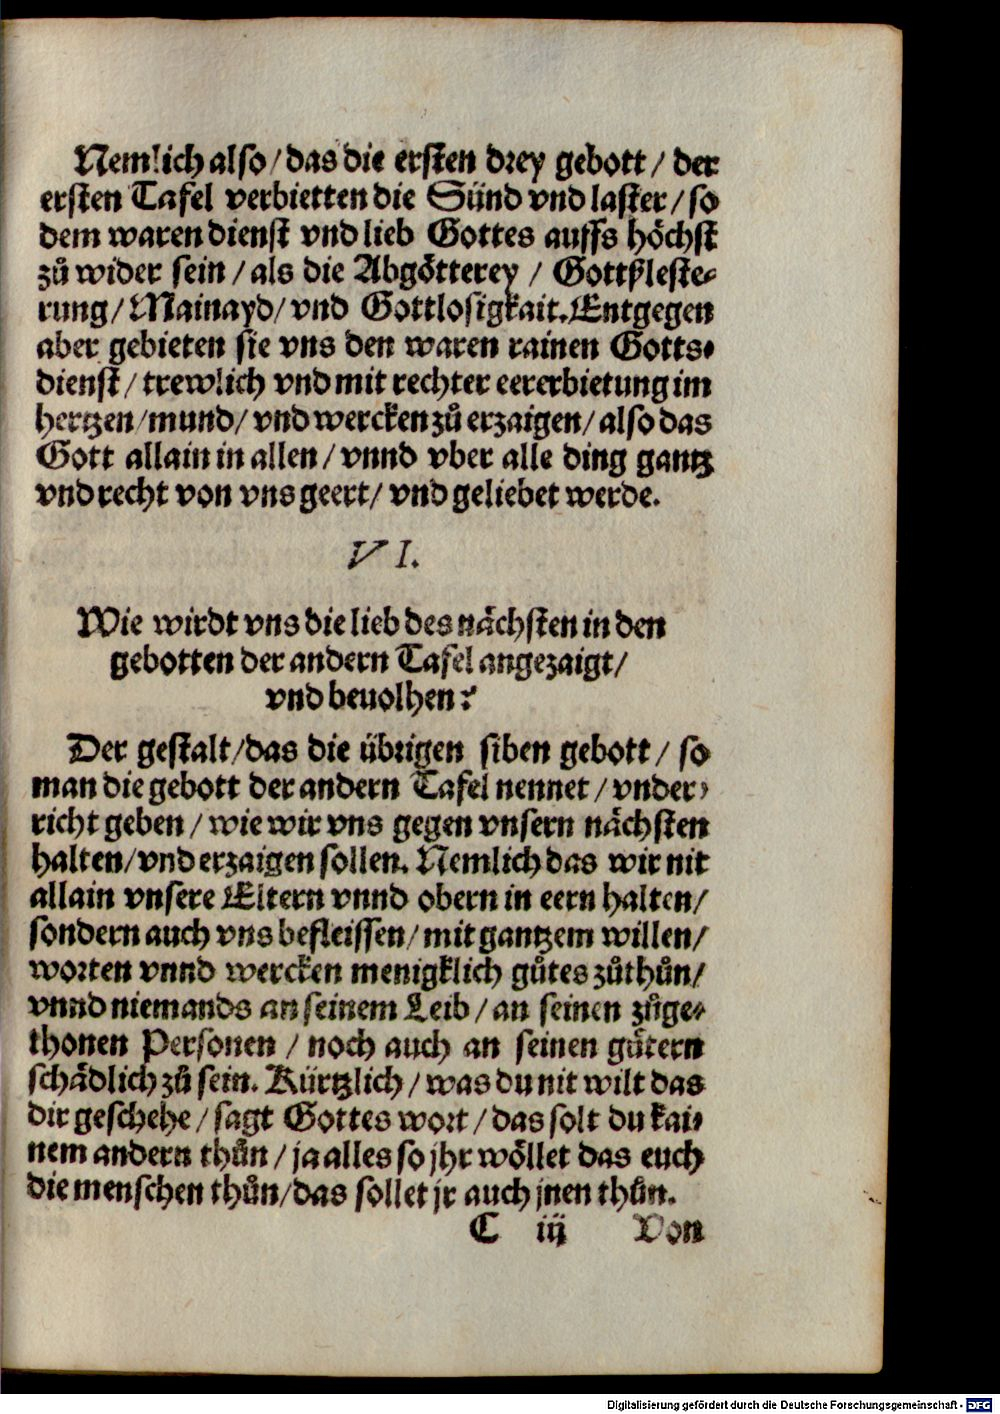 Nemlich also / das die ersten drey gebott / der
ersten Tafel verbietten die Sünd vnd laster / so
dem waren dienst vnd lieb Gottes auffs höchst
zů wider sein / als die Abgötterey / Gottßleste⸗
rung / Mainayd / vnd Gottlosigkait. Entgegen
aber gebieten sie vns den waren rainen Gotts⸗
dienst / trewlich vnd mit rechter eererbietung im
hertzen / mund / vnd wercken zů erzaigen / also das
Gott allain in allen / vnnd vber alle ding gantz
vnd recht von vns geert / vnd geliebet werde.
VI.
Wie wirdt vns die lieb des nächsten in den
gebotten der andern Tafel angezaigt /
vnd beuolhen?
Der gestalt / das die übrigen siben gebott / so
man die gebott der andern Tafel nennet / vnder⸗
richt geben / wie wir vns gegen vnsern nächsten
halten / vnd erzaigen sollen. Nemlich das wir nit
allain vnsere Eltern vnnd obern in eern halten /
sondern auch vns befleissen / mit gantzem willen /
worten vnnd wercken menigklich gůtes zůthůn /
vnnd niemands an seinem Leib / an seinen zůge⸗
thonen Personen / noch auch an seinen gütern
schädlich zů sein. Kürtzlich / was du nit wilt das
dir geschehe / sagt Gottes wort / das solt du kai⸗
nem andern thůn / ja alles so jhr wöllet das euch
die menschen thůn / das sollet jr auch jnen thůn.
C iij Von
Digitalisierung gefördert durch die Deutsche Forschungsgemeinschaft - DFG